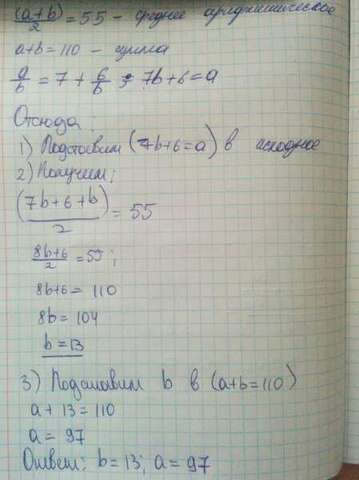 (a+b)/2 = 55 - среднее арифметическое
a+b=110 - сумма
a/b = 7 + 6/b ; 7b+6=a
Отсюда:
1) Подставим (7b+6=a) в исходное
2) Получим:
(7b+6+b)/2 = 55
8b+6/2 = 55;
8b+6 = 110
8b = 104
b = 13
3) Подставим b в (a+b=110)
a + 13 = 110
a = 97
Ответ: b = 13; a = 97